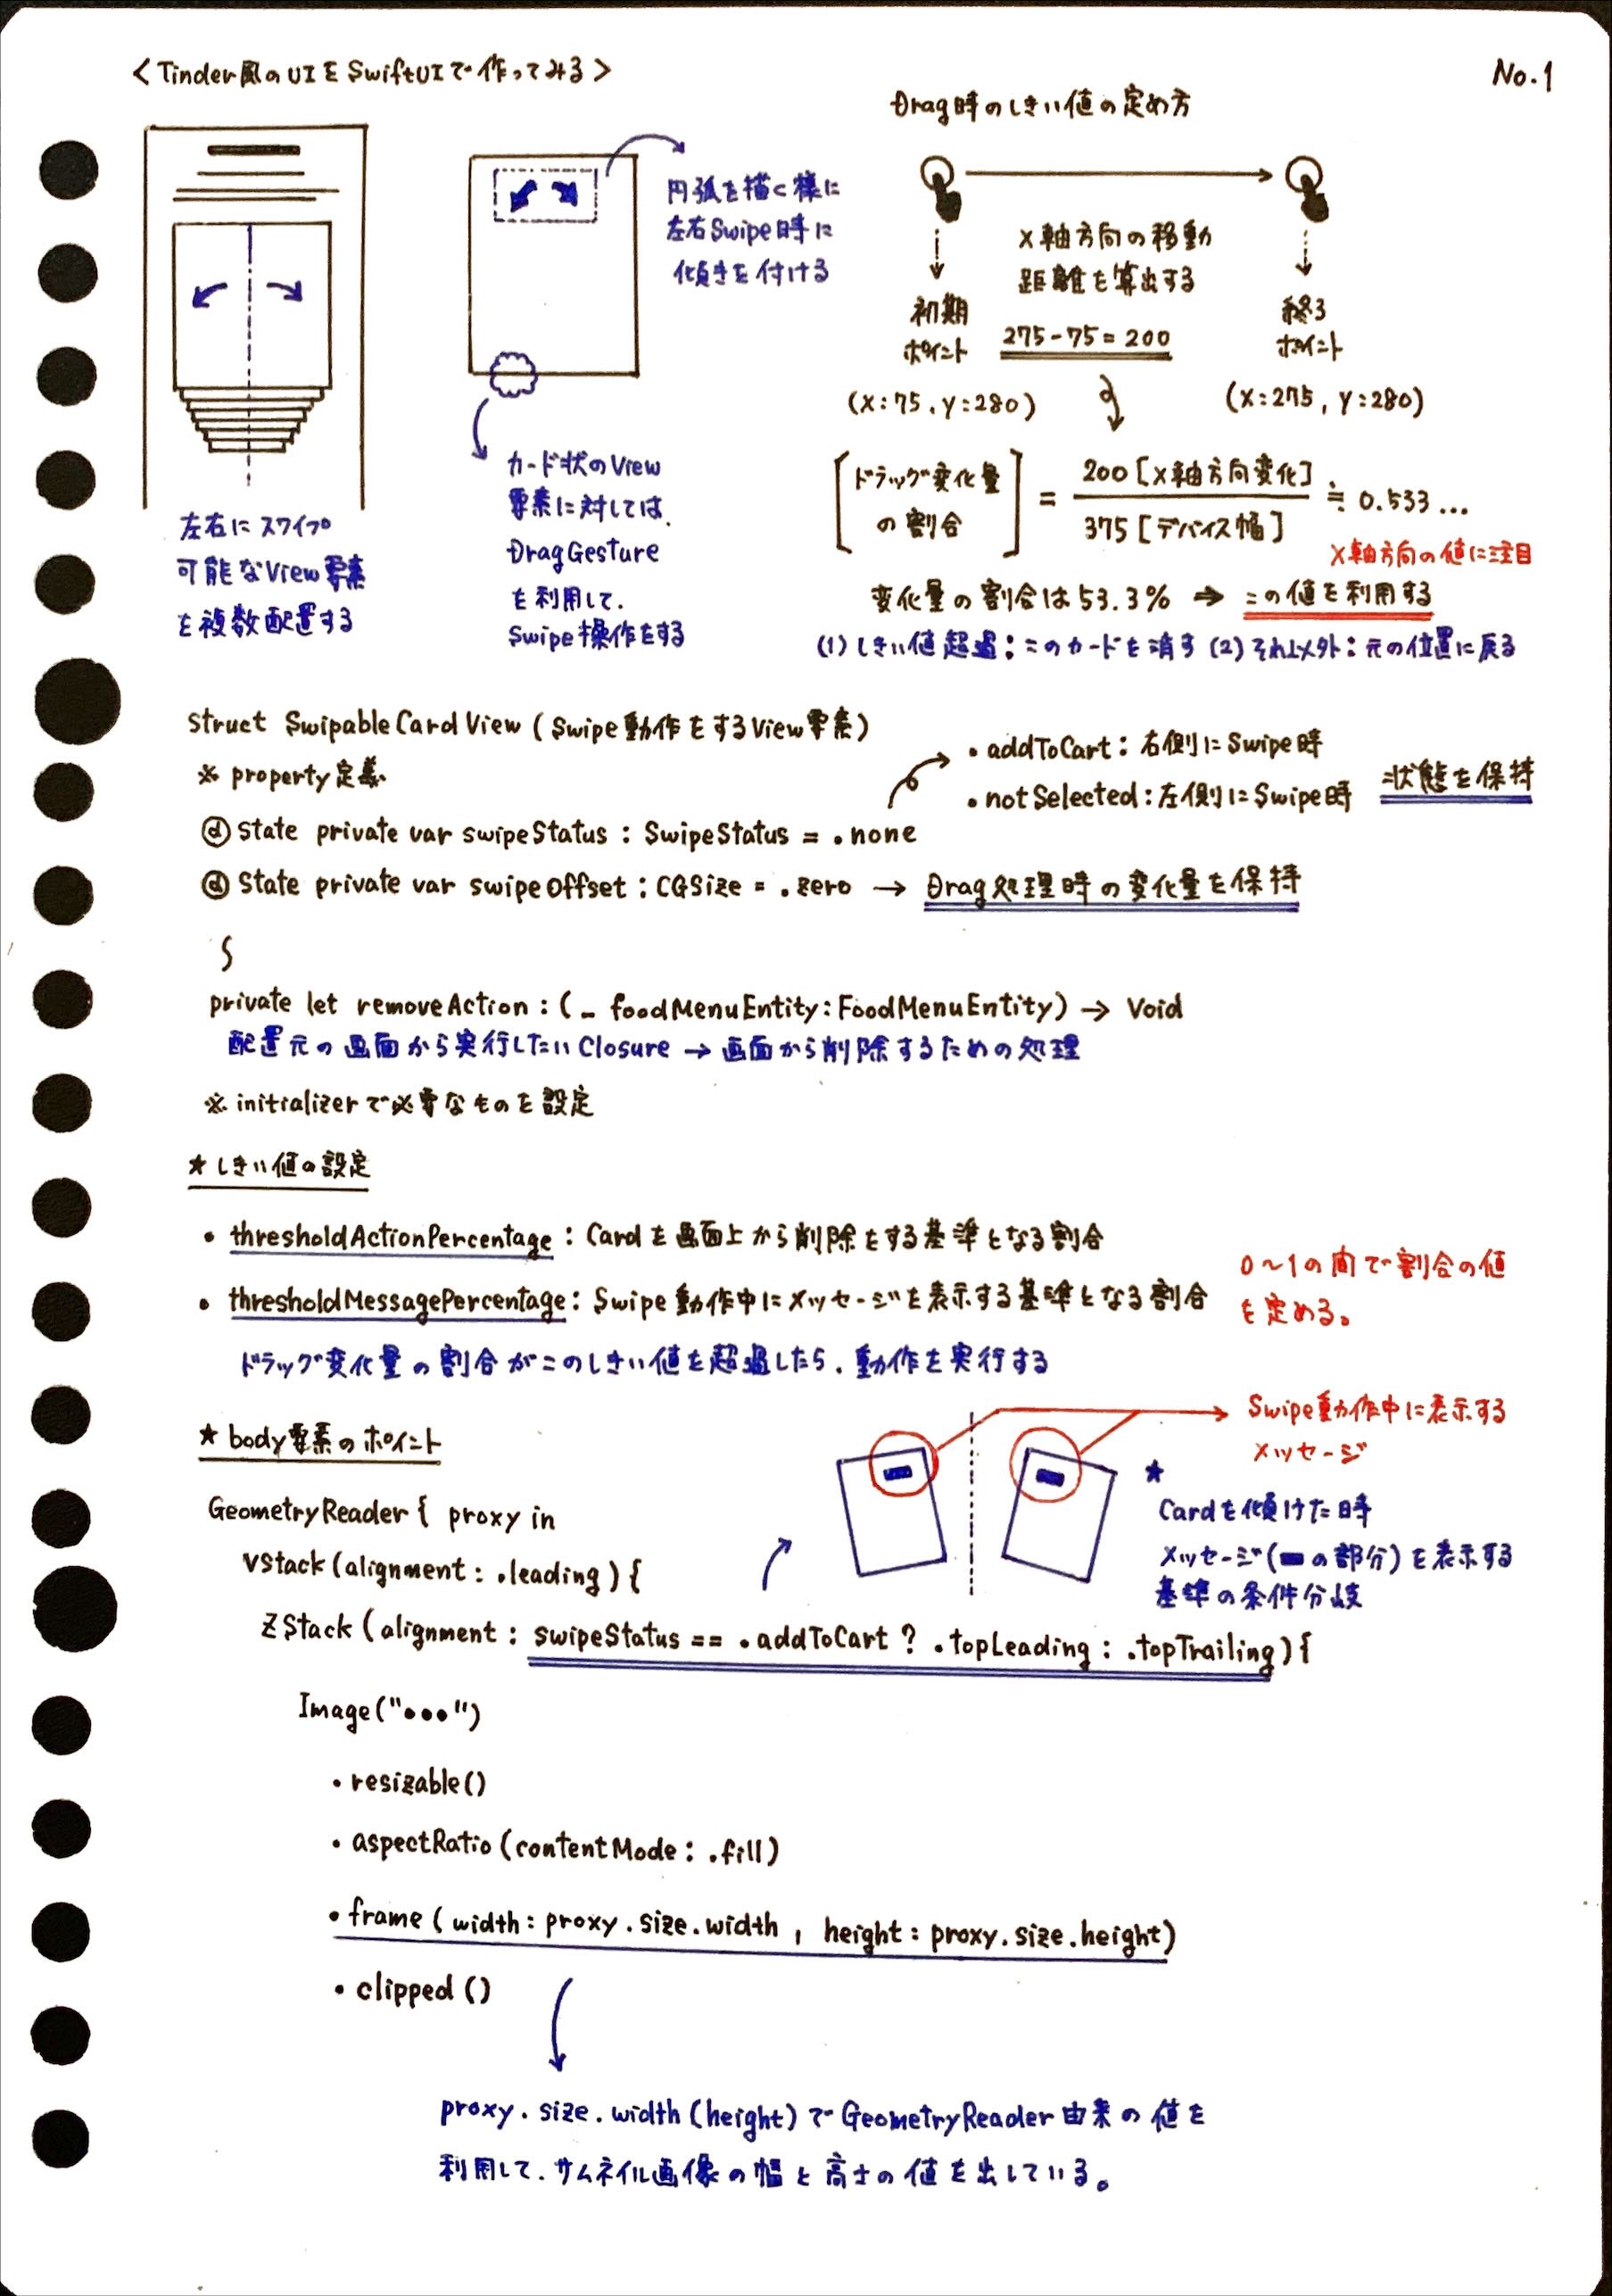 <Tinder風のUIをSwiftUIで作ってみる>
No.1
左右にスワイプ
可能なView要素
を複数配置する
円弧を描く様に
左右Swipe時に
傾きを付ける
カード状のView
要素に対しては、
DragGesture
を利用して、
Swipe操作をする
Drag時のしきい値の定め方
X軸方向の移動
距離を算出する
275-75=200
初期
ポイント
(X:75, Y:280)
終了
ポイント
(X:275, Y:280)
[ドラッグ変化量
の割合]
=
200[X軸方向変化]
375[デバイス幅]
≒ 0.533...
X軸方向の値に注目
変化量の割合は53.3% ⇒ この値を利用する
(1) しきい値超過:このカードを消す (2) それ以外:元の位置に戻る
struct SwipableCardView (Swipe動作をするView要素)
※ property定義
• addToCart: 右側にSwipe時
• notSelected: 左側にSwipe時
状態を保持
@State private var swipeStatus : SwipeStatus = .none
@State private var swipeOffset : CGSize = .zero → Drag処理時の変化量を保持
private let removeAction : (_ foodMenuEntity: FoodMenuEntity) → Void
配置元の画面から実行したいClosure → 画面から削除するための処理
※ initializerで必要なものを設定
★ しきい値の設定
• thresholdActionPercentage : Cardを画面上から削除をする基準となる割合
• thresholdMessagePercentage : Swipe動作中にメッセージを表示する基準となる割合
0〜1の間で割合の値
を定める。
ドラッグ変化量の割合がこのしきい値を超過したら、動作を実行する
★ body要素のポイント
Swipe動作中に表示する
メッセージ
★
Cardを傾けた時
メッセージ(▬の部分)を表示する
基準の条件分岐
GeometryReader { proxy in
VStack (alignment : .leading) {
ZStack (alignment : swipeStatus == .addToCart ? .topLeading : .topTrailing) {
Image("•••")
.resizable()
.aspectRatio (contentMode : .fill)
.frame (width : proxy.size.width , height : proxy.size.height)
.clipped ()
proxy.size.width (height) でGeometryReader由来の値を
利用して、サムネイル画像の幅と高さの値を出している。